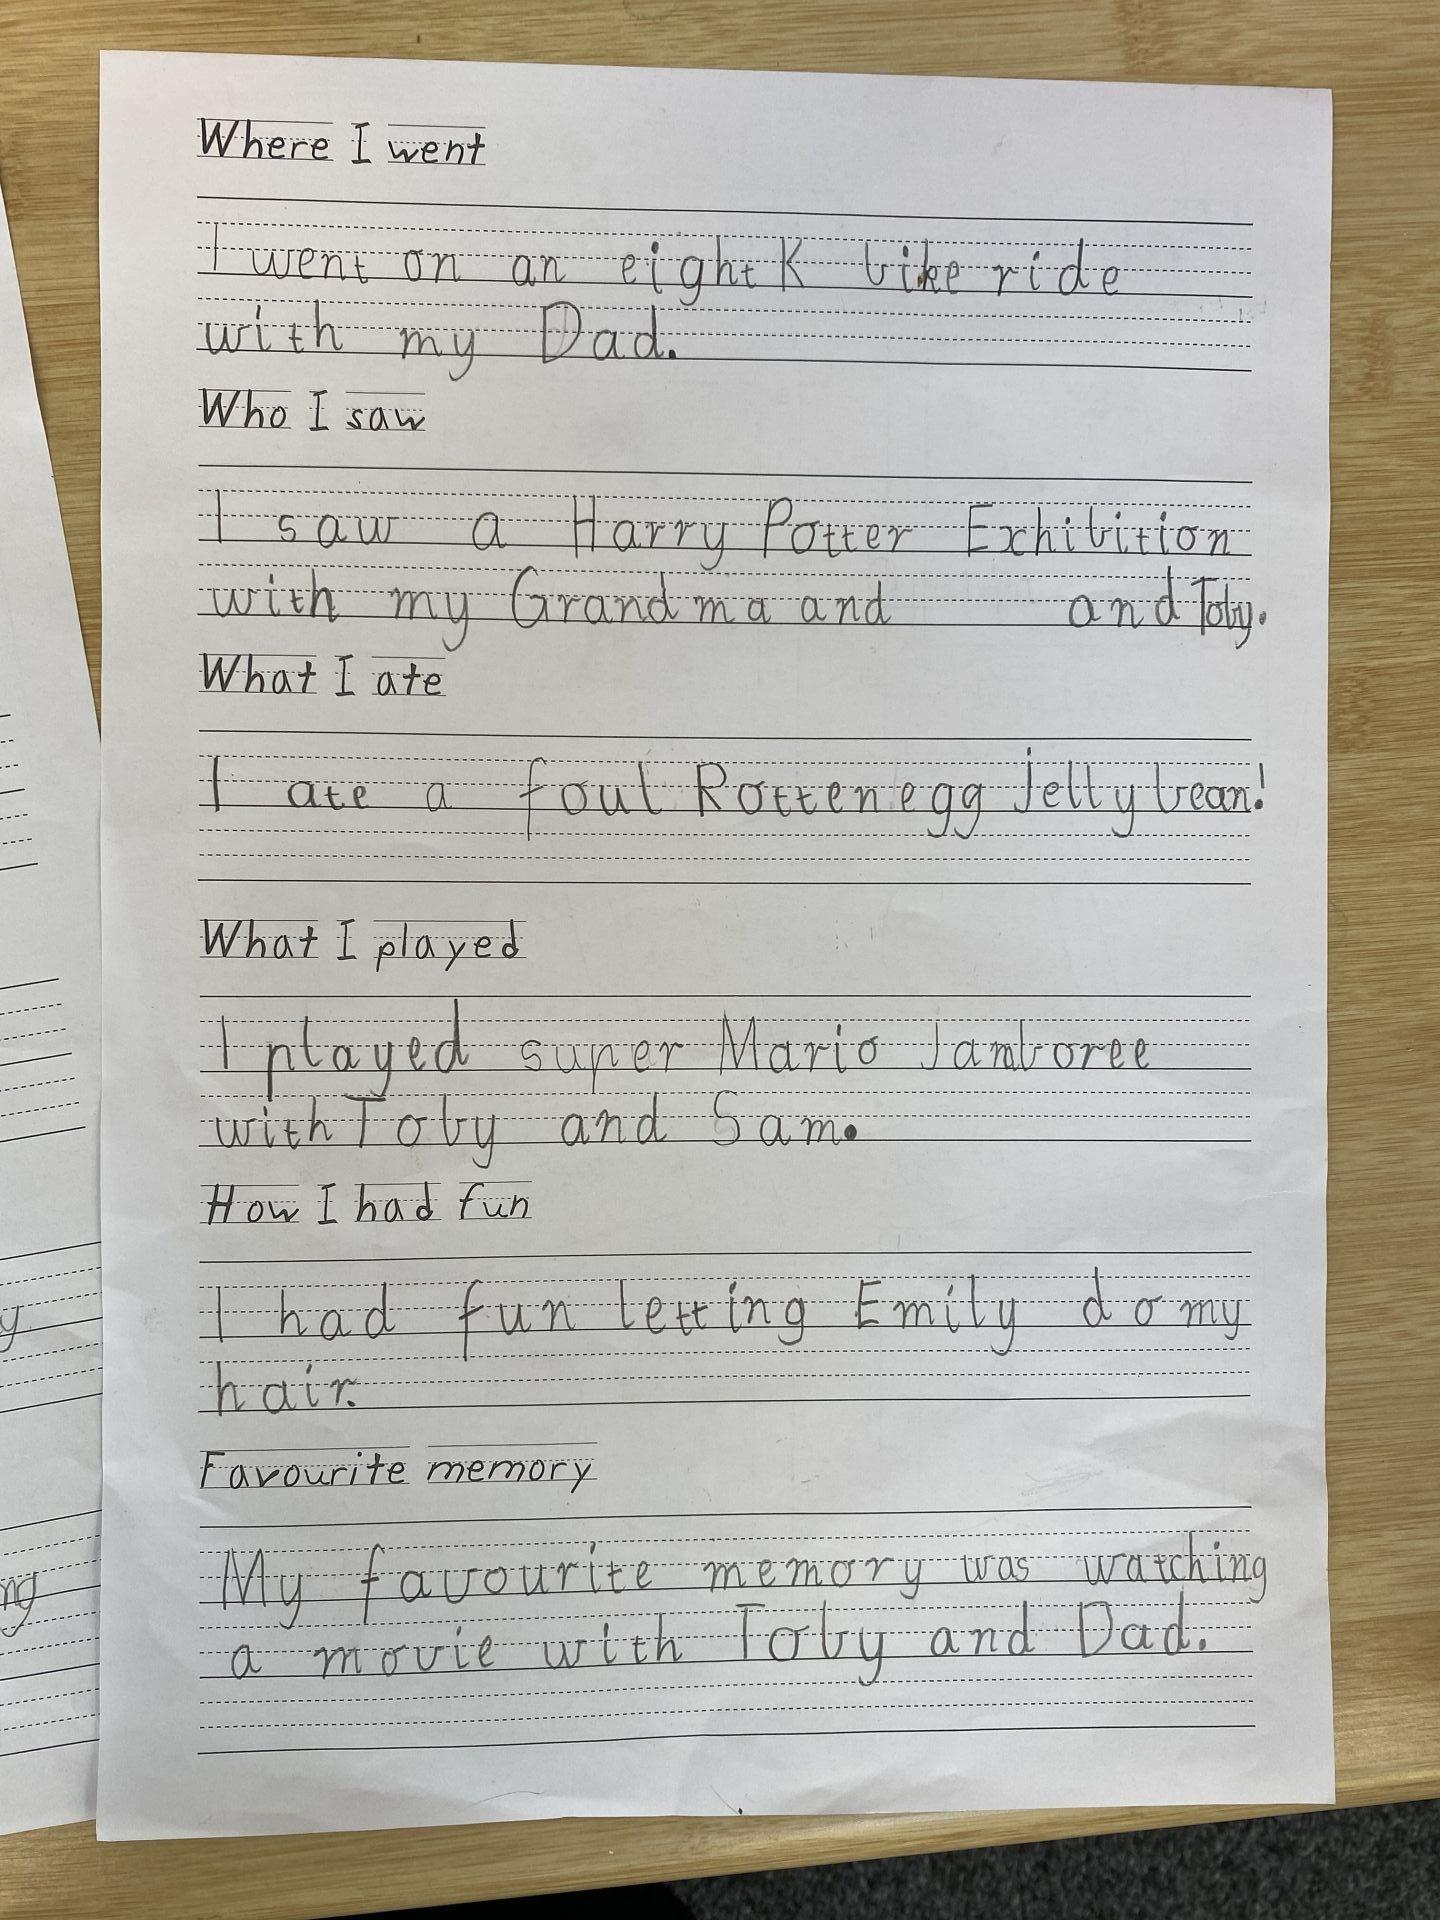 Where I went
I went on an eight K bike ride
with my Dad.
Who I saw
I saw a Harry Potter Exhibition
with my Grandma and and Toby.
What I ate
I ate a foul Rotten egg jelly bean!
What I played
I played super Mario Jamboree
with Toby and Sam.
How I had fun
I had fun letting Emily do my
hair.
Favourite memory
My favourite memory was watching
a movie with Toby and Dad.
y
ng